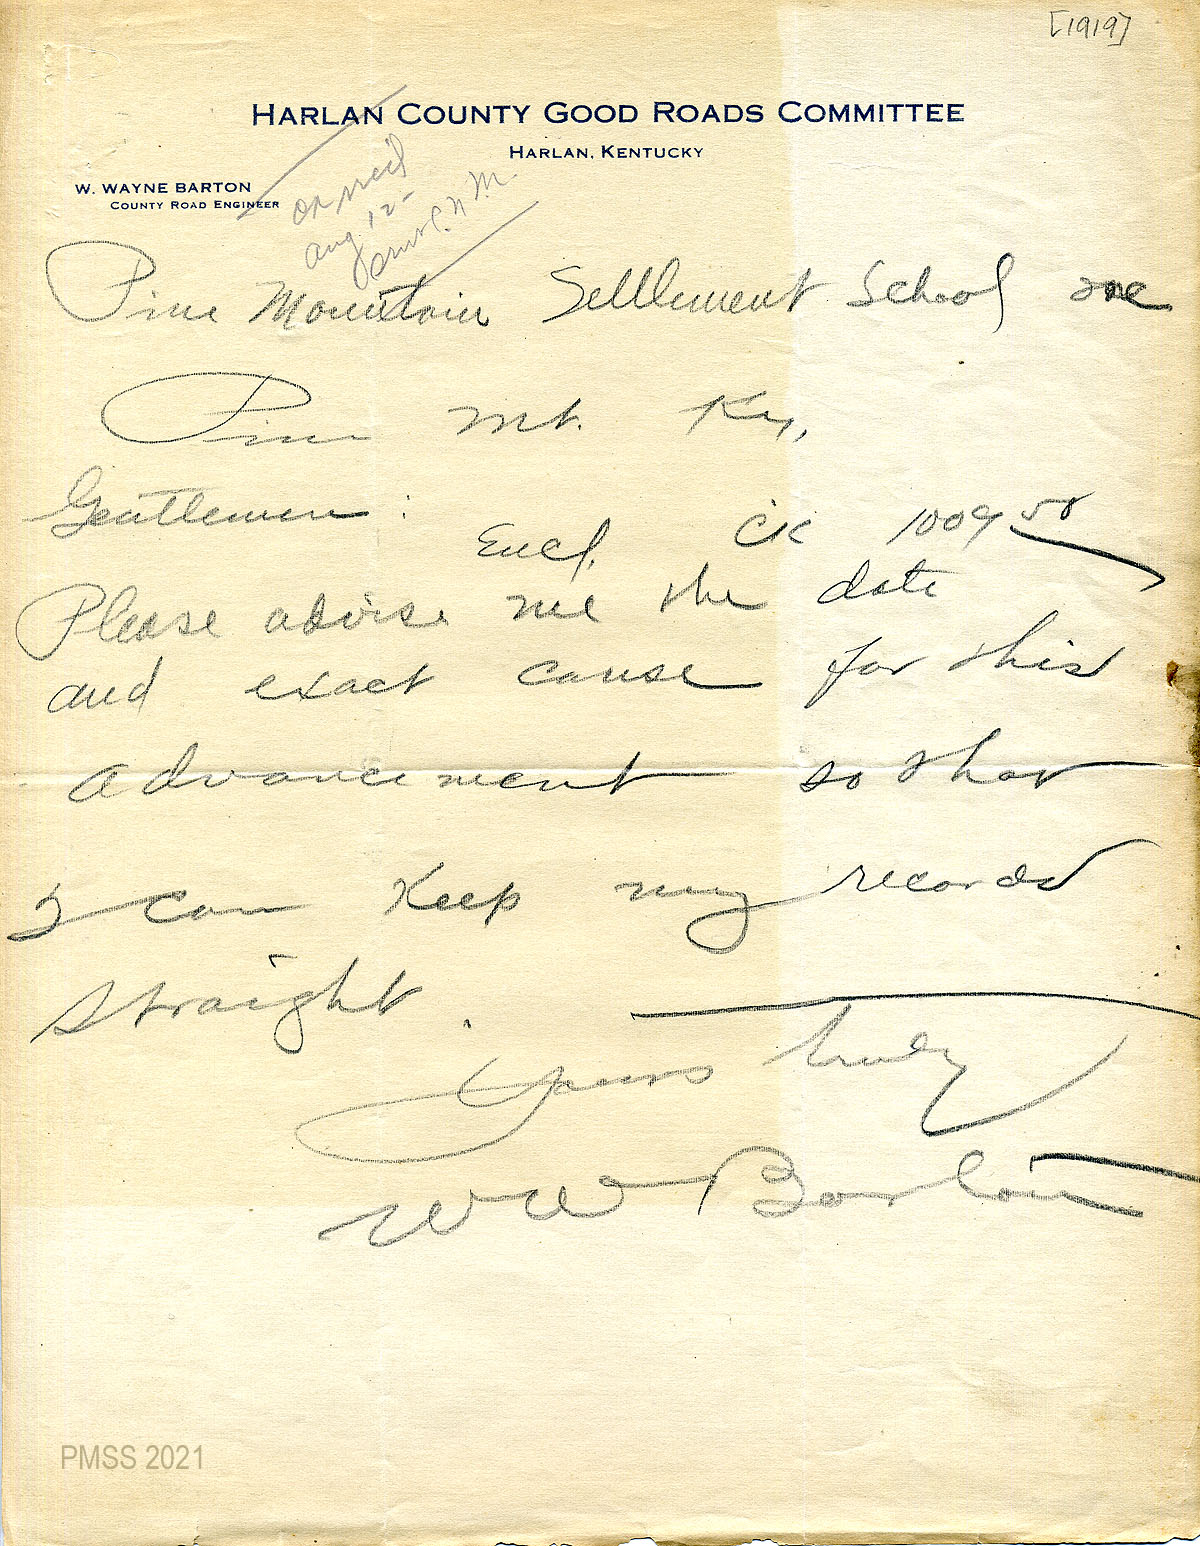 [1919]
HARLAN COUNTY GOOD ROADS COMMITTEE
HARLAN, KENTUCKY
W. WAYNE BARTON
COUNTY ROAD ENGINEER
Aug 12
Pine Mountain Settlement School
Pine Mt. Ky,
Gentlemen:
Encl. CK 1009 50
Please advise me the date
and exact cause for this
advancement so that
I can Keep my records
straight.
Yours truly
W W Barton
PMSS 2021